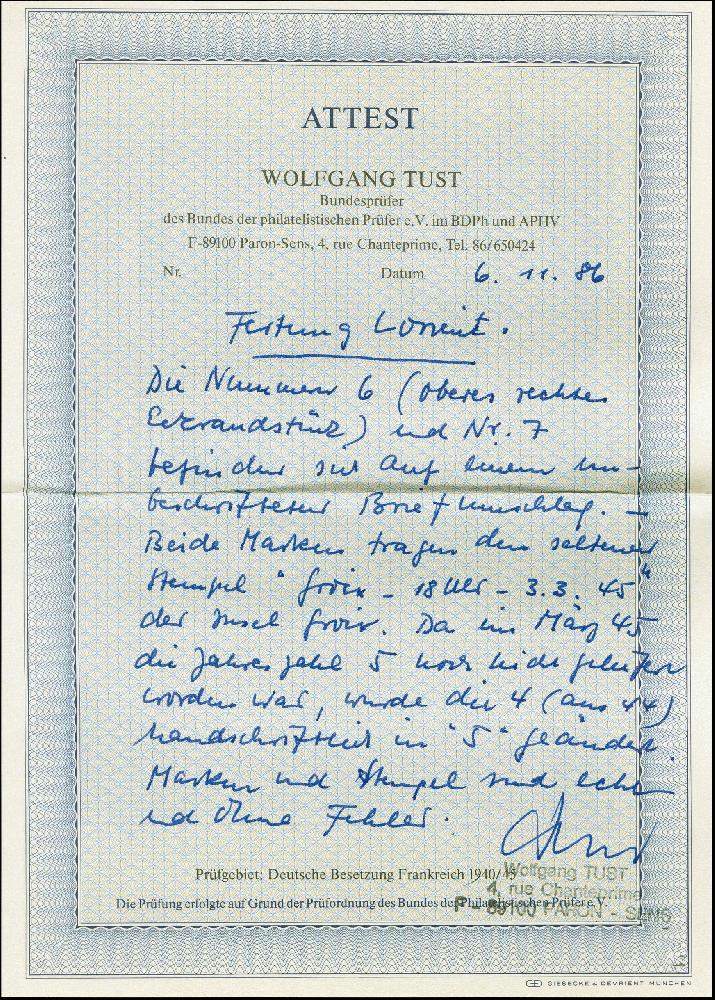 ATTEST
WOLFGANG TUST
Bundesprüfer
des Bundes der philatelistischen Prüfer e.V. im BDPh und APHV
F-89100 Paron-Sens, 4, rue Chanteprime, Tel. 86/650424
Nr. Datum 6. 11. 86
Festung Lorient.
Die Nummern 6 (oberes rechtes
Eckrandstück) und Nr. 7
befinden sich auf einem un-
beschrifteten Briefumschlag. –
Beide Marken tragen den seltenen
Stempel "Groix – 18 Uhr – 3.3.45"
der Insel Groix. Da im März 45
die Jahreszahl 5 noch nicht geliefert
worden war, wurde die 4 (aus 44)
handschriftlich in "5" geändert.
Marken und Stempel sind echt
und ohne Fehler.
Prüfgebiet: Deutsche Besetzung Frankreich 1940/45
Wolfgang TUST
4, rue Chanteprime
F - 89100 PARON - SENS
Die Prüfung erfolgte auf Grund der Prüfordnung des Bundes der Philatelistischen Prüfer e.V.
GIESECKE & DEVRIENT MÜNCHEN